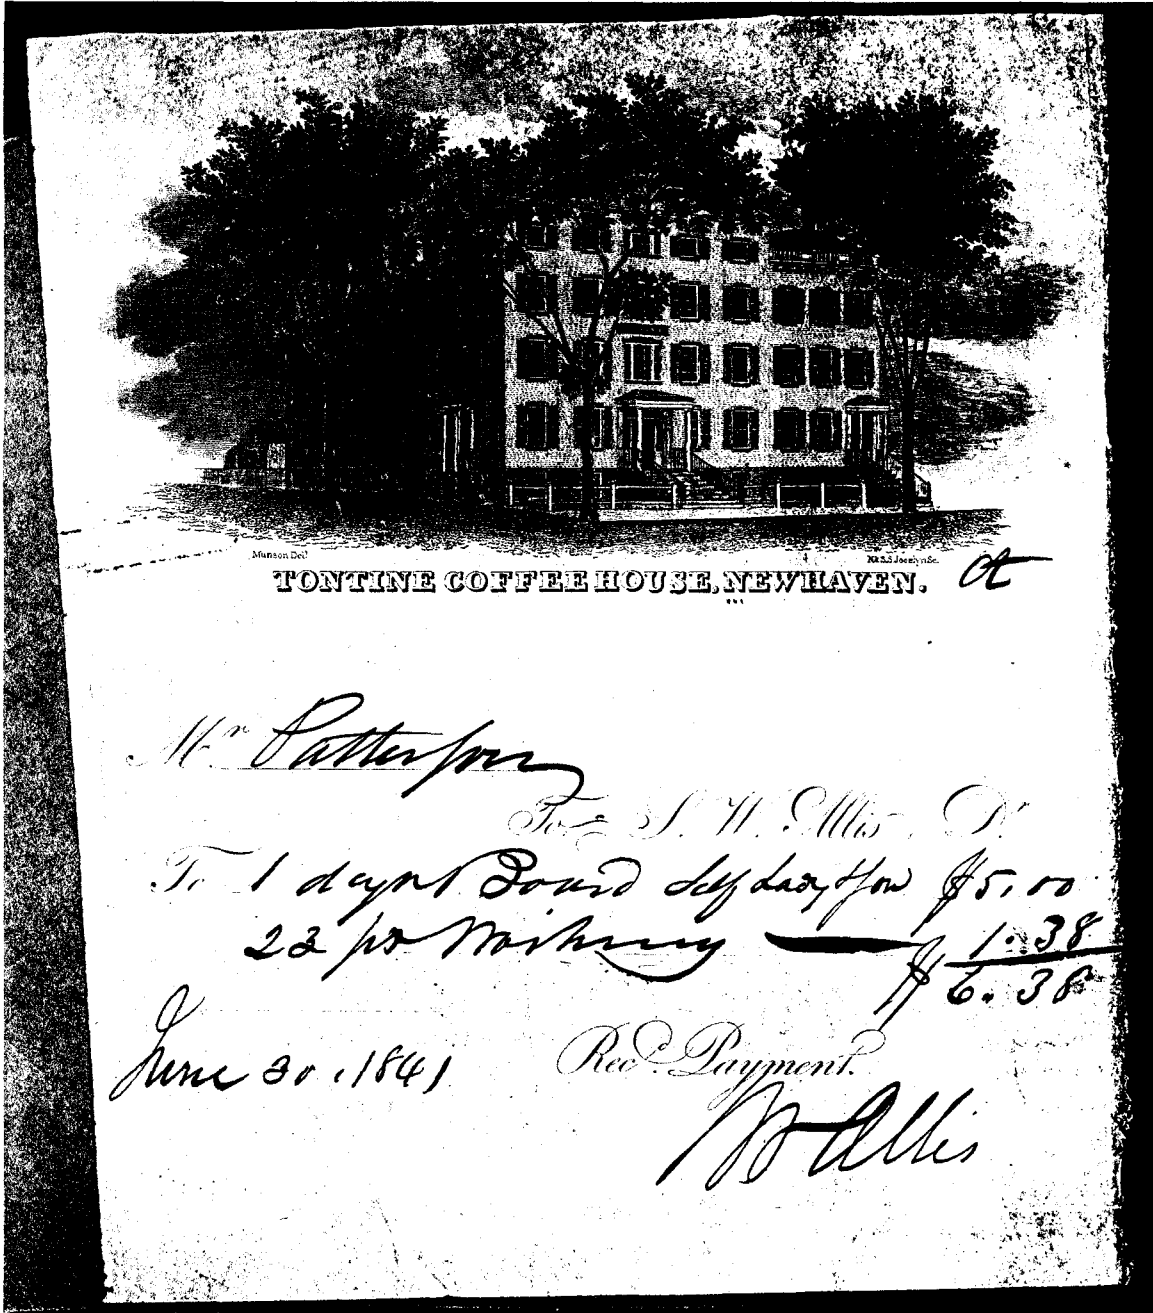 Munson Del.
N. & S.S. Jocelyn Sc.
TONTINE COFFEE HOUSE, NEWHAVEN. Ct
Mr. Patterson
To S. W. Allis, Dr.
To 1 days Board Self Lady & Son $5.00
23 ps Washing $1.38
$6.38
June 30, 1841
Recd. Payment.
W Allis